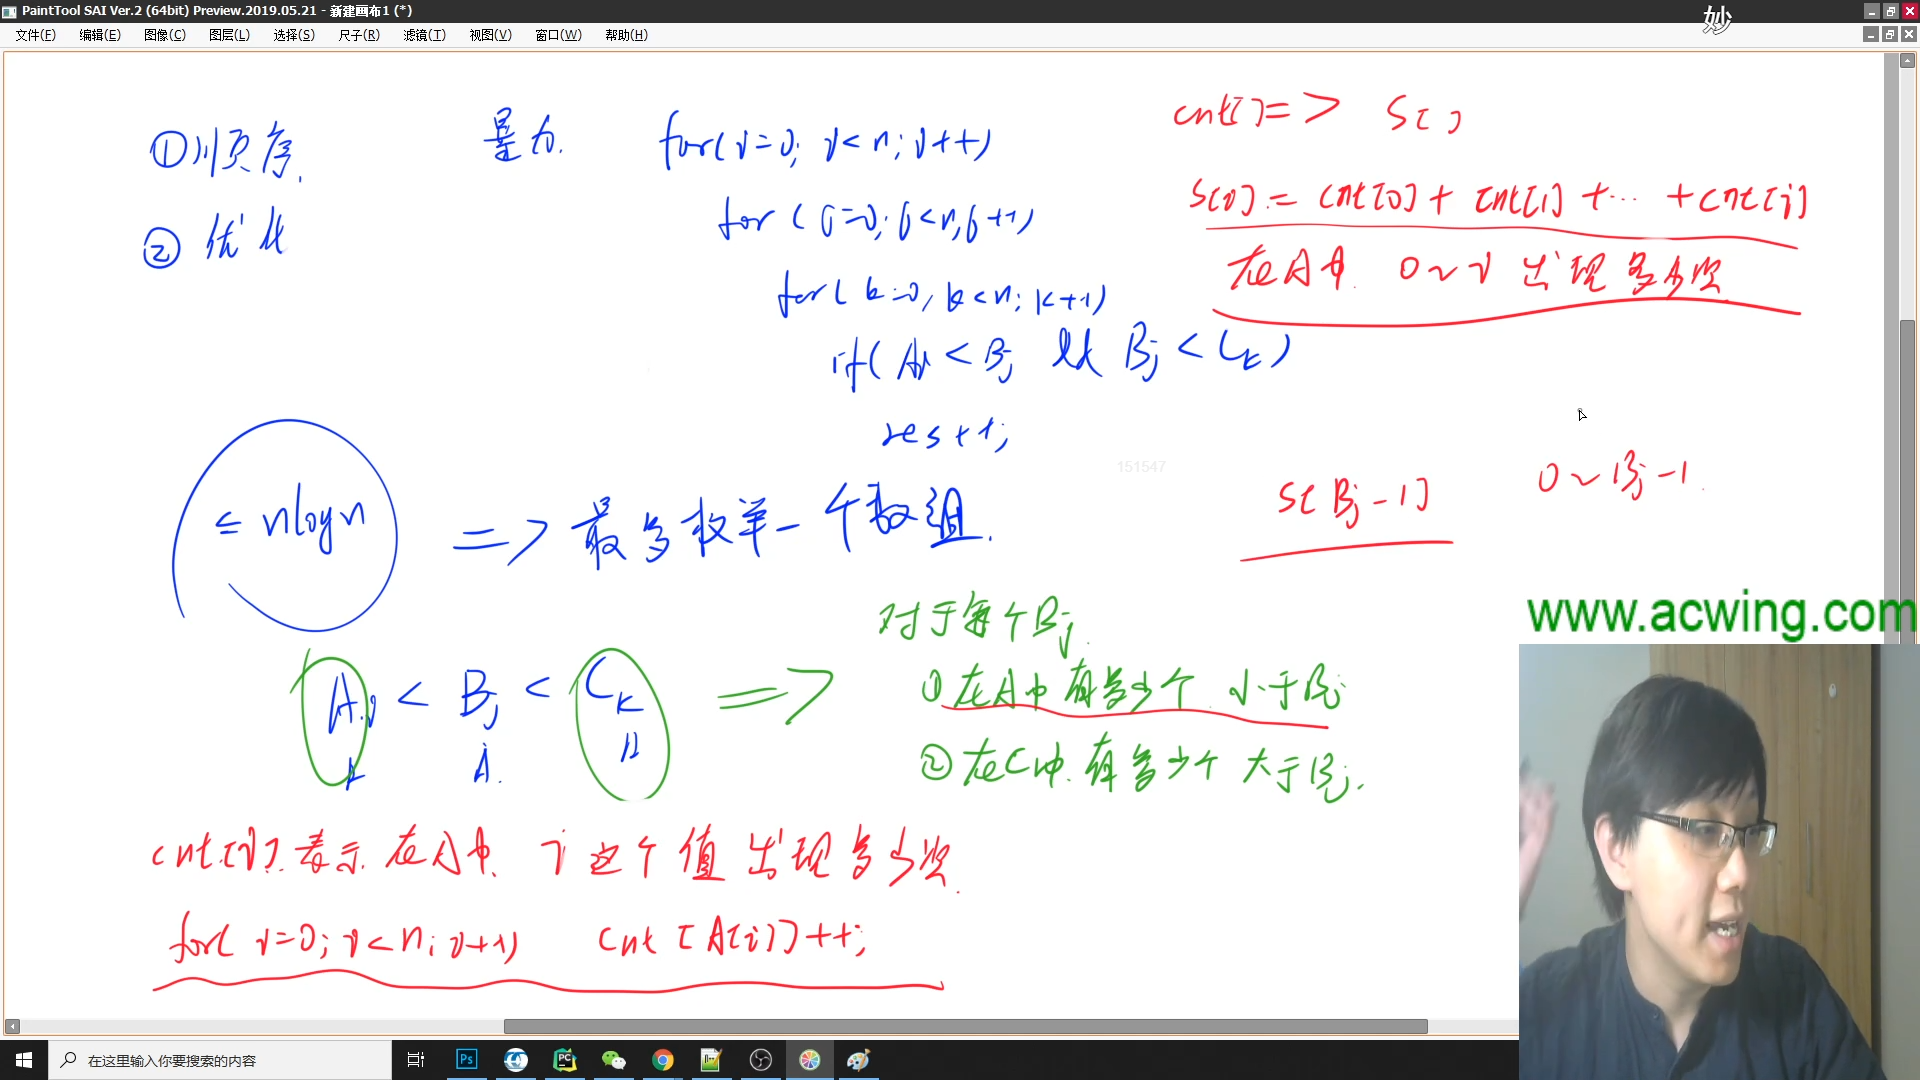 PaintTool SAI Ver.2 (64bit) Preview.2019.05.21 - 新建画布1 (*)
妙
文件(F) 编辑(E) 图像(C) 图层(L) 选择(S) 尺子(R) 滤镜(T) 视图(V) 窗口(W) 帮助(H)
①顺序.
②优化
暴力.
for(i=0; i<n; i++)
for(j=0; j<n; j++)
for(k=0; k<n; k++)
if(Ai < Bj && Bj < Ck)
res++;
cnt[] => S[]
S[i] = cnt[0] + cnt[1] + ... + cnt[i]
在A中. 0~i 出现多少次
151547
S[Bj-1]
0~Bj-1.
≤ nlogn => 最多枚举一个数组.
www.acwing.com
对于每个Bj
Ai < Bj < Ck =>
①在A中有多少个 小于Bj
②在C中.有多少个 大于Bj.
cnt[i].表示.在A中. i这个值出现多少次.
for(i=0; i<n; i++) cnt[A[i]]++;
在这里输入你要搜索的内容
Ps
PC